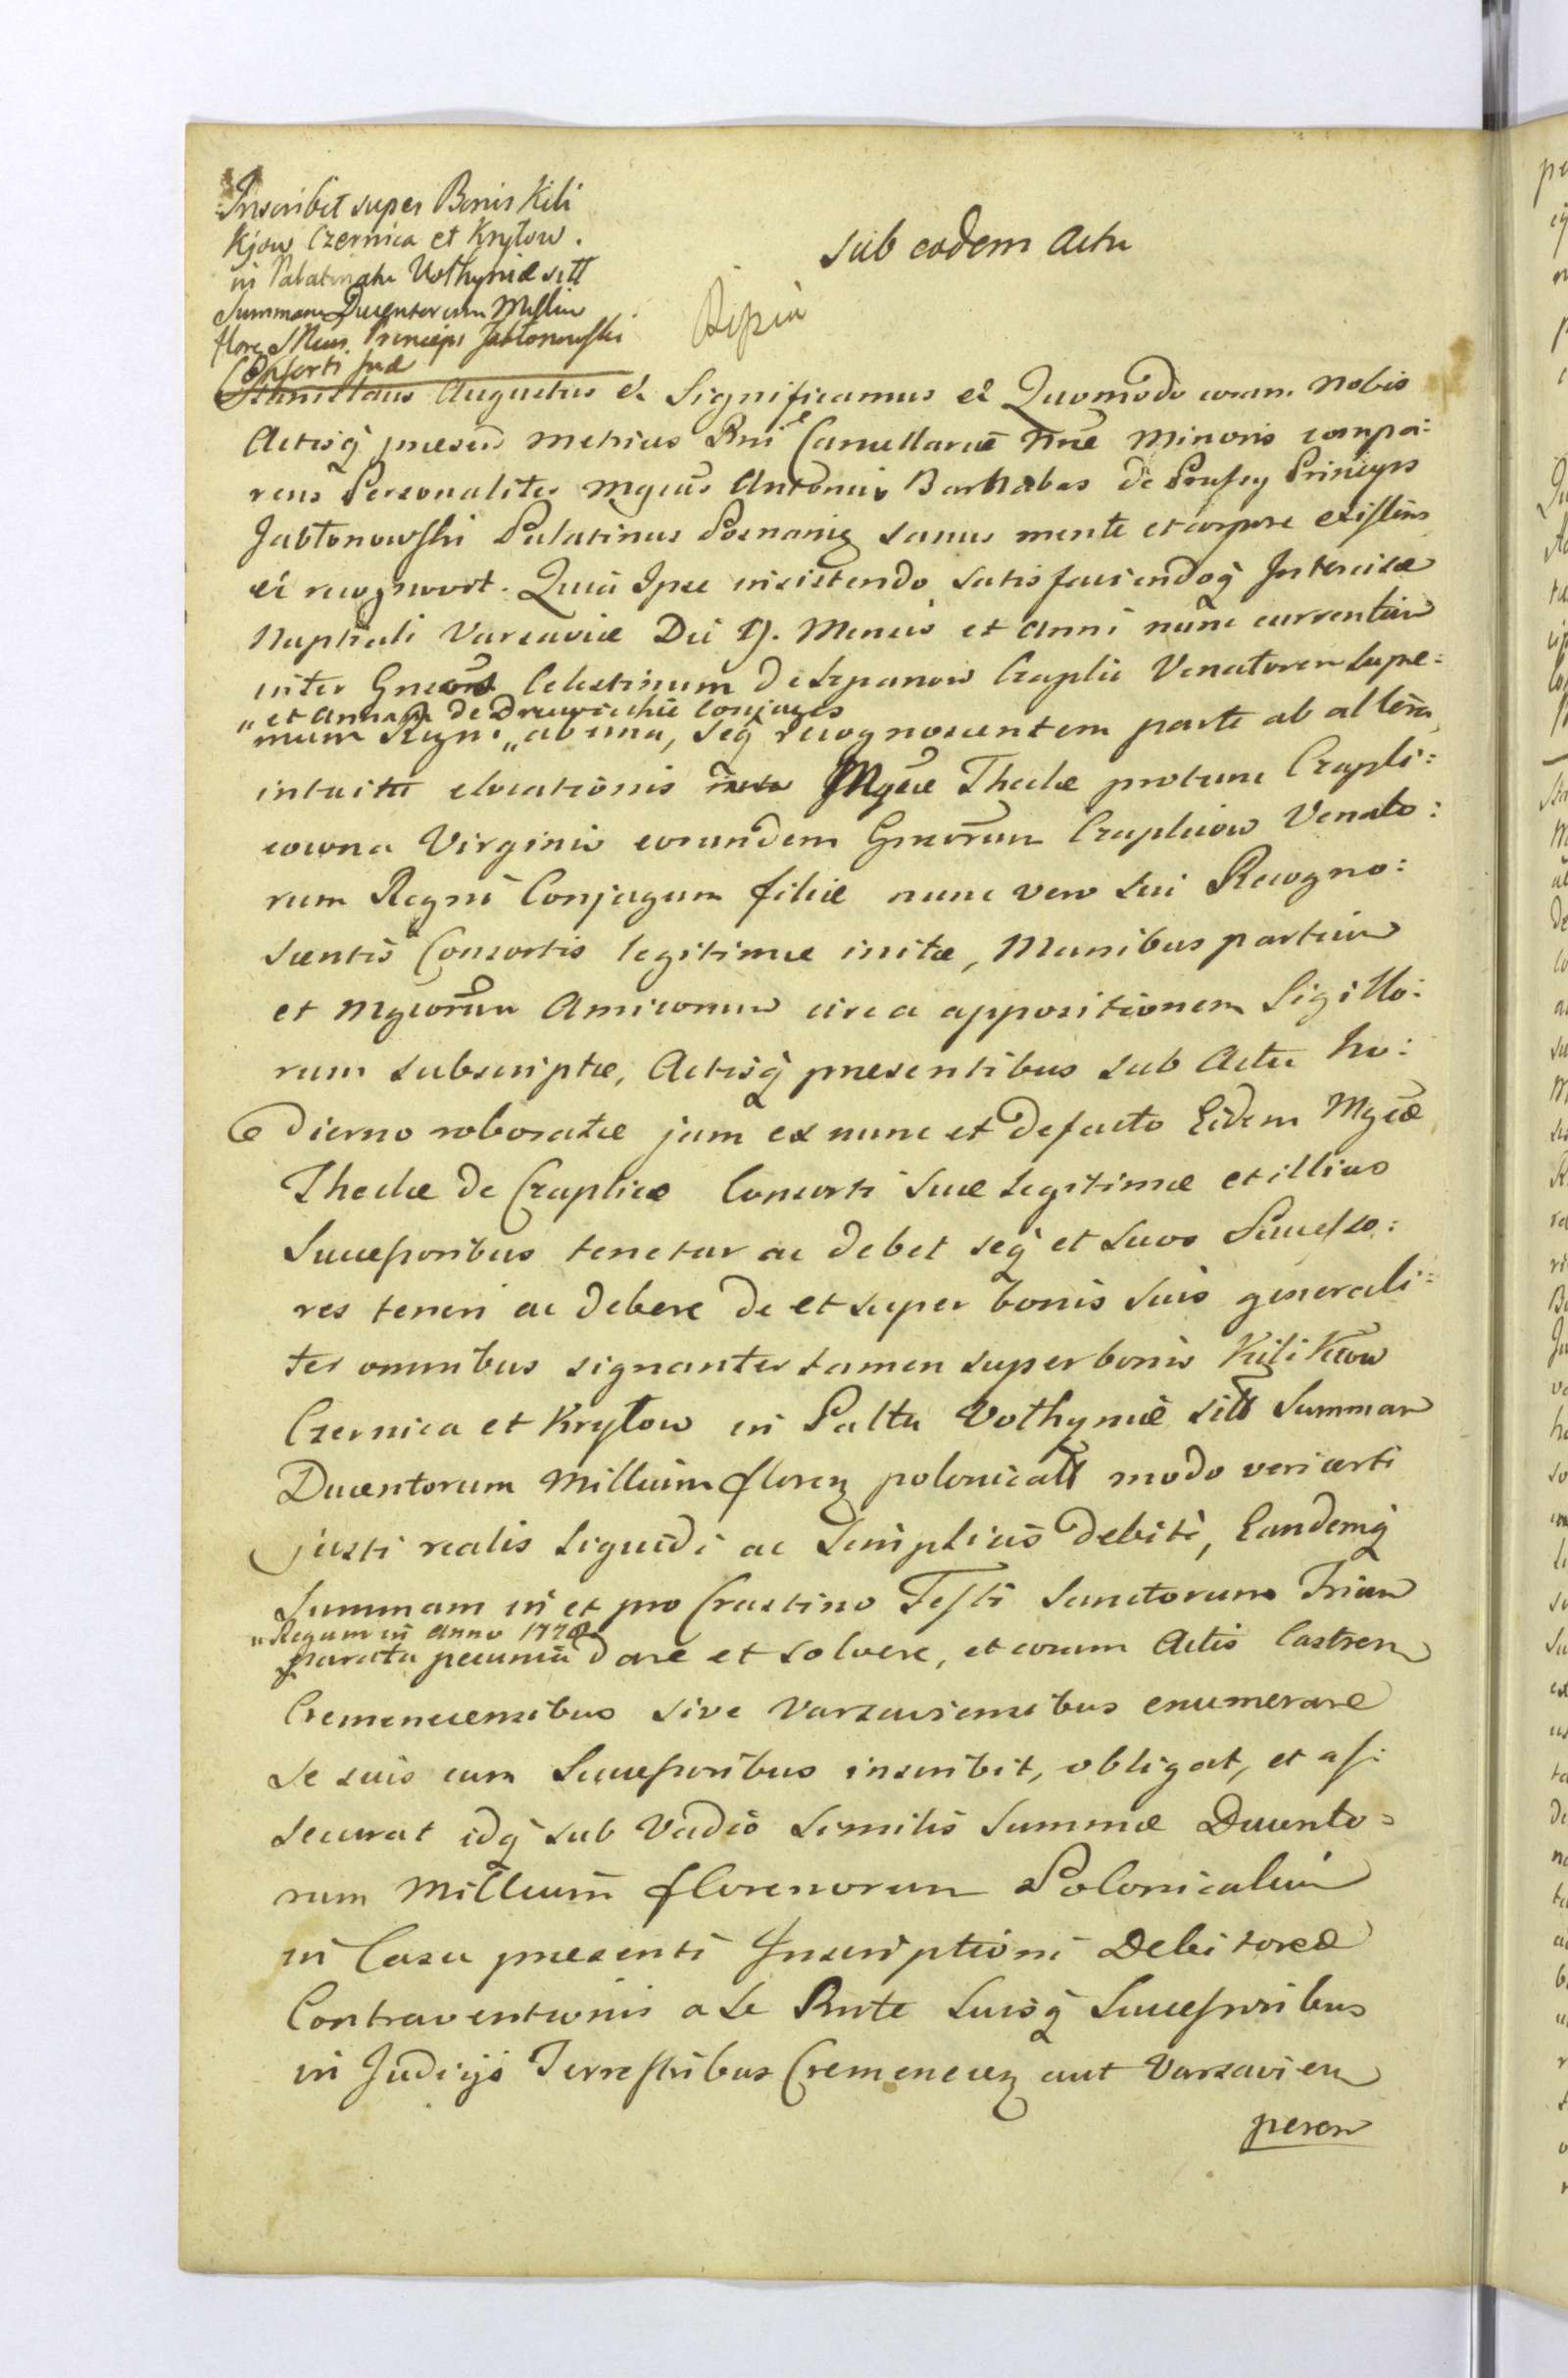 Inscribit super Bonis Kili
Kjow Czernica et Kryłow.
in Palatinatu Vołhyniæ sitt
Summam Ducentorum Millium
floren Mcus Princeps Jabłonowski
Consorti suæ
sub eodem Actu
Stanislaus Augustus &c Significamus &c Quomodo coram nobis
Actisq̃ præsen Metrices Rni Cancellariæ Nræ Minoris compa:
rens Personaliter Mgcus Antonius Barnabas de Prussy Princeps
Jabłonowski Palatinus Posnaniæ sanus mente et corpore existens
et recognovit. Quia Ipse insistendo satisfaciendoq̃ Intercisæ
Nuptiali Varsaviæ Die 19. Mensis et Anni nunc currentium
inter Gnsos Celestinum de Szpanow Czaplic Venatorem supre:
„et Annam de Drewieckie Conjuges
mum Regni „ab una, seq̃ recognoscentem parte ab altera
intuitu elocationis Mgcæ Theclæ protunc Czapli:
cowna Virginis eorundem Gnsorum Czaplicow Venato:
rum Regni Conjugum filiæ nunc vero sui Recogno:
scentis Consortis legitimæ initæ, Manibus partium
et Mgcorum Amicorum circa appositionem Sigillo:
rum subscriptæ, Actisq̃ præsentibus sub Actu ho:
dierno roboratæ jam ex nunc et defacto Eidem Mgcæ
Theclæ de Czaplice Consorti suæ legitimæ et illius
Successoribus tenetur ac debet seq̃ et suos Successo:
res teneri ac debere de et super bonis suis generali:
ter omnibus signanter tamen super bonis Kilikiow
Czernica et Kryłow in Palttu Vołhyniæ sitt Summam
Ducentorum Millium floren polonicall modo veri certi
justi realis liquidi ac simplicis debiti, Eandemq̃
Summam in et pro Crastino Festi Sanctorum Trium
„Regum in Anno
parata pecunia dare et solvere, et coram Actis Castren
Cremenecensibus sive Varsaviensibus enumerare
se suis cum Successoribus inscribit, obligat, et as:
securat idq̃ sub Vadio similis Summæ Ducento:
rum Millium florenorum Polonicalium
in Casu præsenti Inscriptioni Debitoreæ
Contraventionis a se Rnte Suisq̃ Successoribus
in Judicijs Terrestribus Cremenecen aut Varsavien
peren